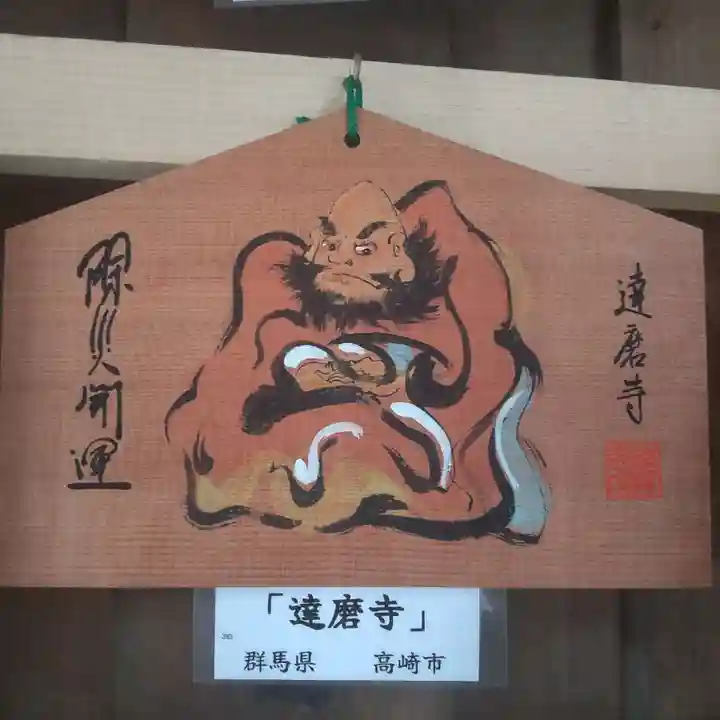 達磨寺
除災開運
「達磨寺」
群馬県 高崎市